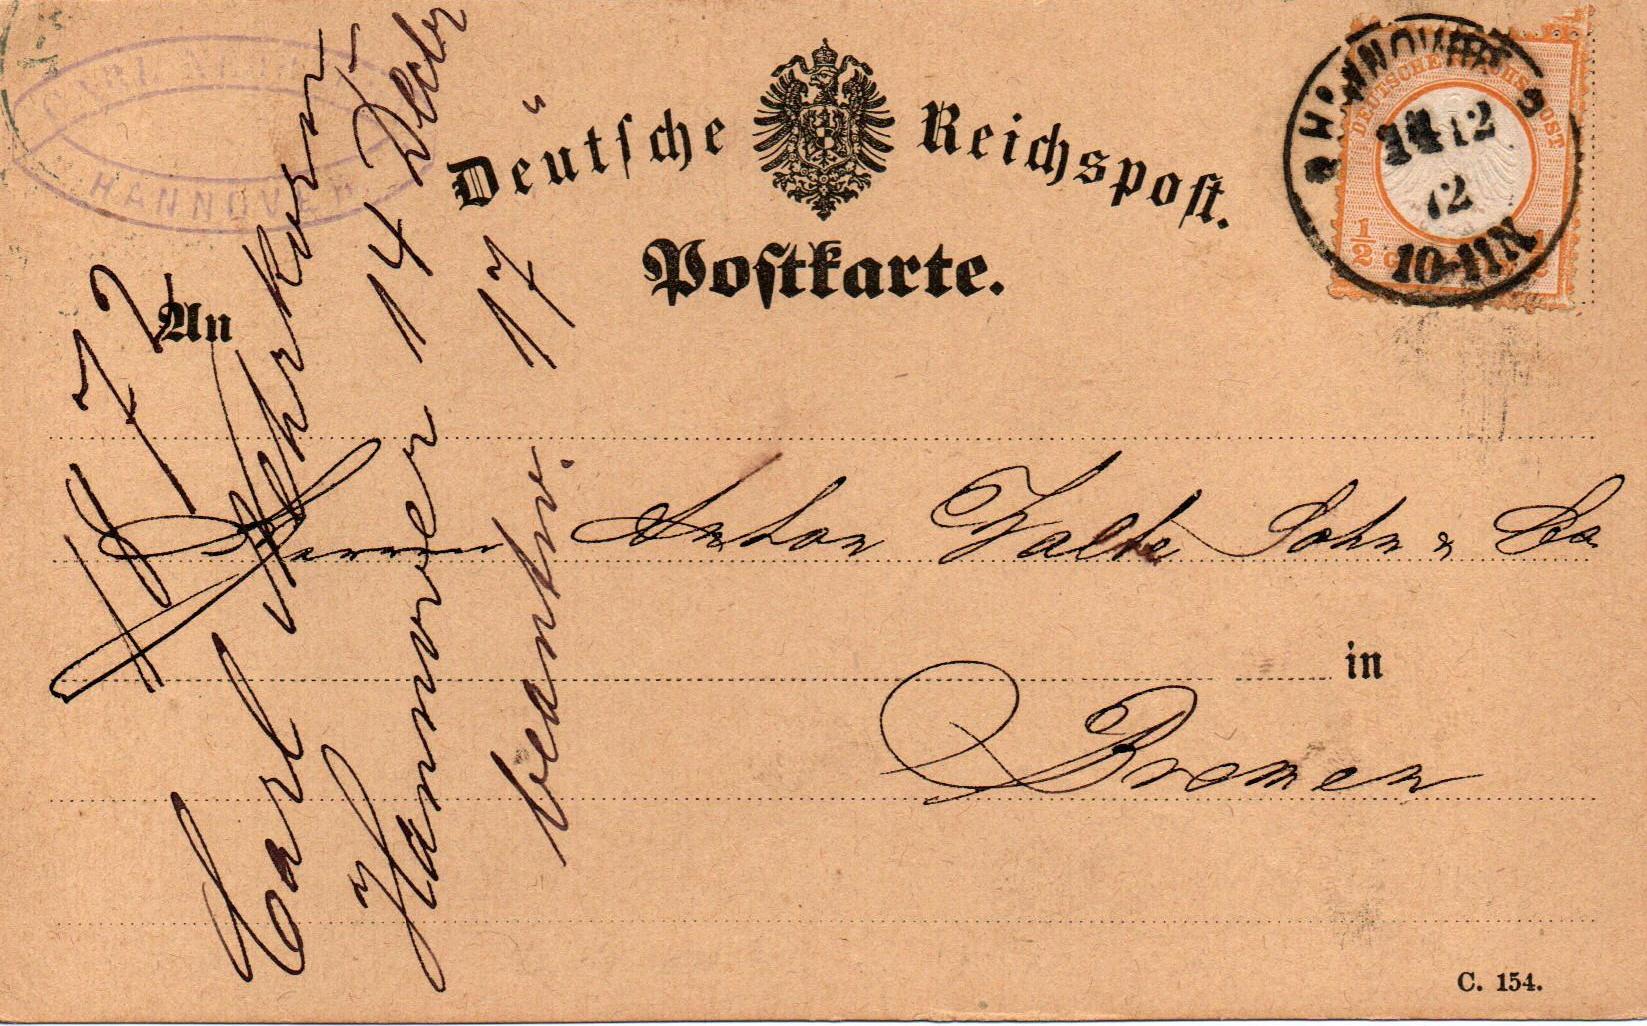 HANNOVER
Deutsche Reichspost.
Postkarte.
HANNOVER
14 12
72
10-11 N
DEUTSCHE REICHS POST
1/2
An
Herren Anton Sohn & Co
in
Bremen
1872
Carl
Hannover 14 Decbr
beantw. 17 "
C. 154.